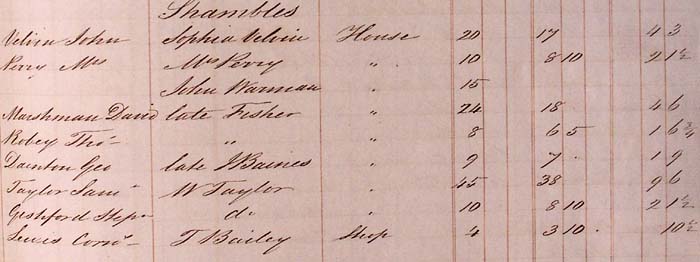 Shambles
Velvin John Sophia Velvin House 20 17 4 3
Perry Mrs Mrs Perry " 10 8 10 2 1½
John Warman " 15
Marshman David late Fisher " 24 18 4 6
Robey Thos " " 8 6 5 1 6¾
Dainton Geo late J Baines " 9 7 1 9
Taylor Saml W Taylor " 45 38 9 6
Step do " 10 8 10 2 1½
Lewis T Bailey Shop 4 3 10 10½